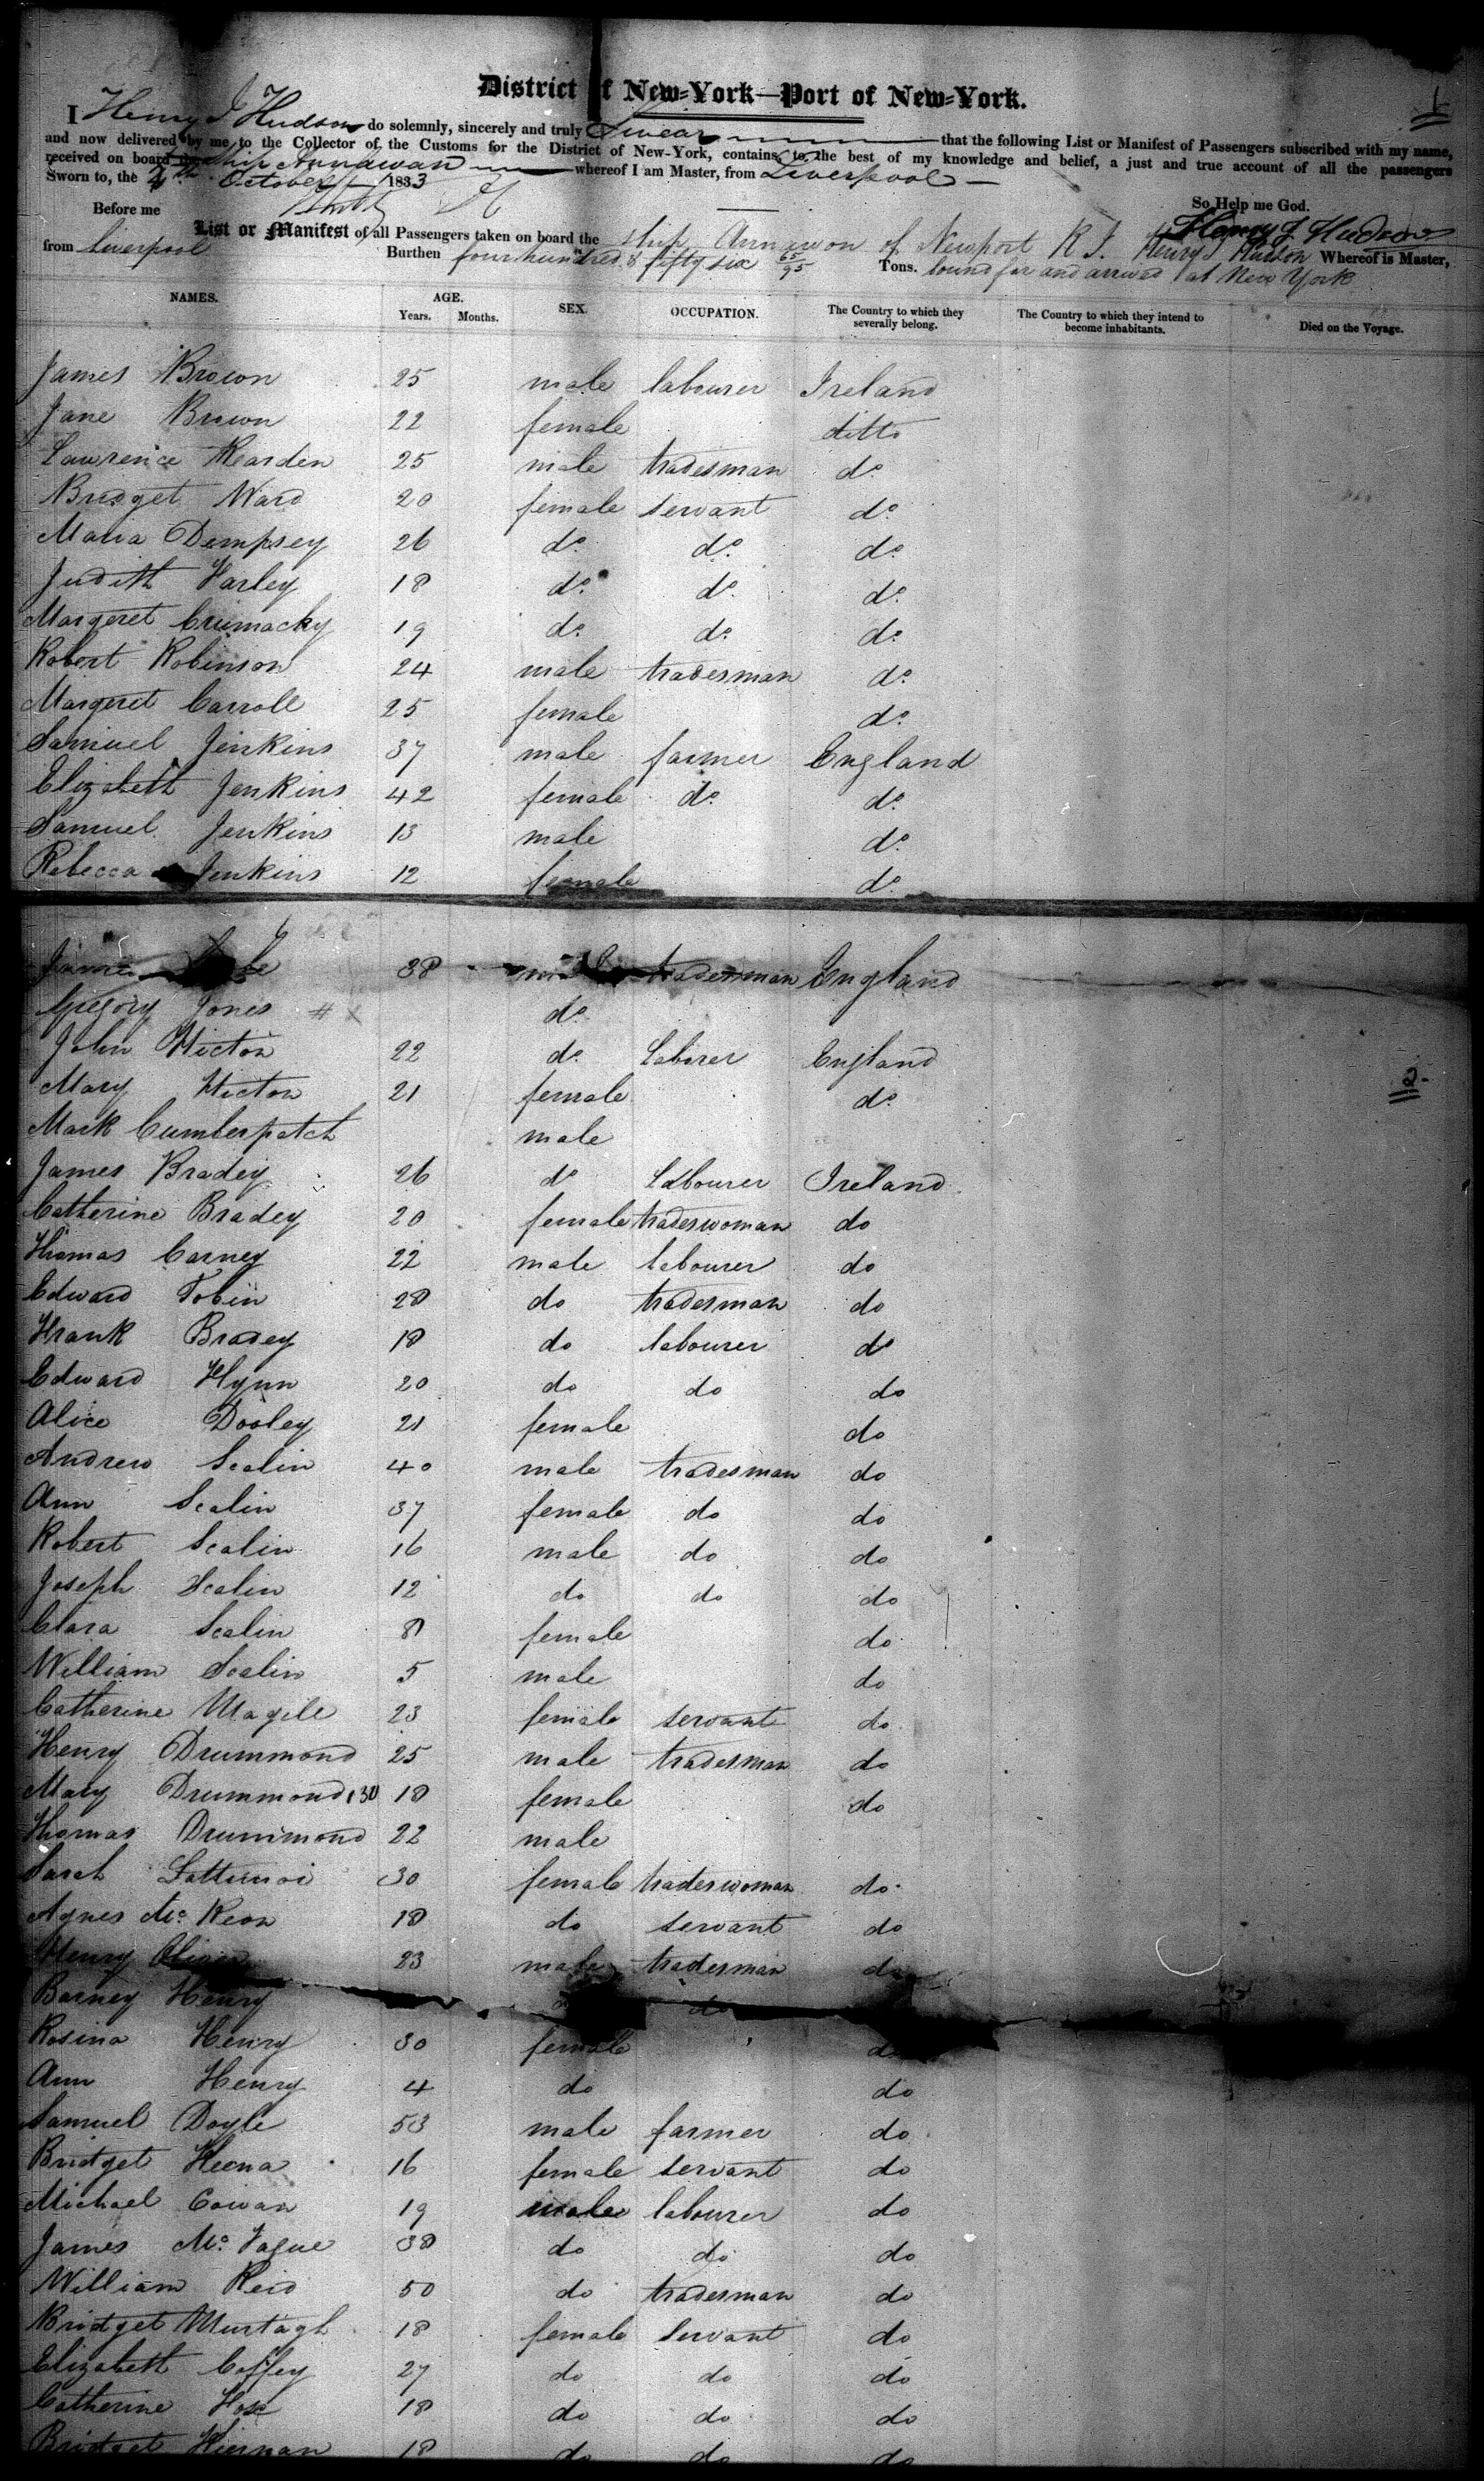 1
District of New-York—Port of New-York.
I Henry J Hudson do solemnly, sincerely and truly Swear that the following List or Manifest of Passengers subscribed with my name,
and now delivered by me to the Collector of the Customs for the District of New-York, contains, to the best of my knowledge and belief, a just and true account of all the passengers
received on board the Ship Annawan whereof I am Master, from Liverpool
Sworn to, the 4th October 1833
So Help me God.
Before me
Henry J Hudson
List or Manifest of all Passengers taken on board the ship Annawan of Newport R I. Henry J Hudson Whereof is Master,
from Liverpool Burthen four hundred & fifty six 65/95 Tons. bound for and arrived at New York
NAMES. AGE. SEX. OCCUPATION. The Country to which they severally belong. The Country to which they intend to become inhabitants. Died on the Voyage.
Years. Months.
James Brown 25 male labourer Ireland
Jane Brown 22 female ditto
Lawrence Rearden 25 male tradesman do
Bridget Ward 20 female servant do
Maria Dempsey 26 do do do
Judith Farley 18 do do do
Margeret Crumacky 19 do do do
Robert Robinson 24 male tradesman do
Margeret Carroll 25 female do
Samuel Jenkins 37 male farmer England
Elizabeth Jenkins 42 female do do
Samuel Jenkins 13 male do
Rebecca Jenkins 12 female do
James 38 tradesman England
Gregory Jones # X do
John Hicton 22 do Laborer England
Mary Hicton 21 female do
2
Mark Cumberpatch male
James Bradey 26 do Labourer Ireland
Catherine Bradey 20 female tradeswoman do
Thomas Carney 22 male labourer do
Edward Tobin 28 do tradesman do
Frank Bradey 18 do labourer do
Edward Flynn 20 do do do
Alice Dooley 21 female do
Andrew Scalin 40 male tradesman do
Ann Scalin 37 female do do
Robert Scalin 16 male do do
Joseph Scalin 12 do do do
Clara Scalin 8 female do
William Scalin 5 male do
Catherine Magill 23 female servant do
Henry Drummond 25 male tradesman do
Mary Drummond 130 18 female do
Thomas Drummond 22 male
Sarah 30 female tradeswoman do
Agnes Mc Keon 18 do servant do
Henry 23 male tradesman do
Barney Henry do
Rosina Henry 30 female do
Ann Henry 4 do do
Samuel Doyle 53 male farmer do
Bridget Keena 16 female servant do
Michael Cowan 19 male labourer do
James Mc Vague 38 do do do
William Reid 50 do tradesman do
Bridget Murtagh 18 female servant do
Elizabeth Coffey 27 do do do
Catherine Fox 18 do do do
Bridget Kiernan 18 do do do